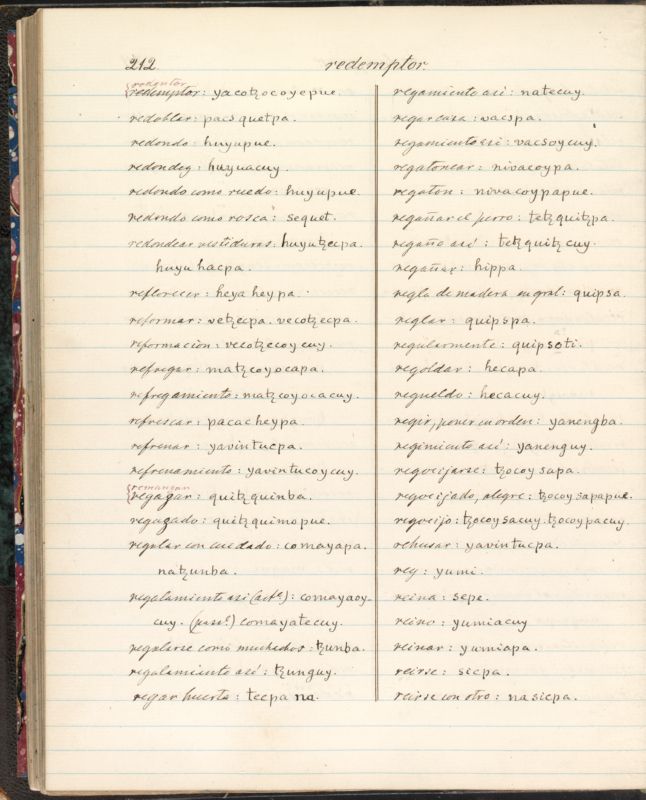 212
redemptor.
redentor
redemptor: yacotzocoyepue.
redoblar: pacs quetpa.
redondo: huyupue.
redondez: huyuacuy.
redondo como ruedo: huyupue.
redondo como rosca: sequet.
redondear vestiduras: huyutzecpa.
huyu hacpa.
reflorecer: heya heypa.
reformar: vetzecpa. vecotzecpa.
reformacion: vecotzecoycuy.
refregar: matzcoyocapa.
refregamiento: matzcoyocacuy.
refrescar: pacacheypa.
refrenar: yavintucpa.
refrenamiento: yavintucoycuy.
remanzan
regazar: quitzquinba.
regazado: quitzquimopue.
regalar con cuidado: comayapa.
natzunba.
regalamiento asi (acto): comayaoy-
cuy. (pas.) comayatecuy.
regalarse como muchachos: tzunba.
regalamiento así: tzunguy.
regar huerta: tecpa na.
regamiento así: natecuy.
regar casa: vacspa.
regamiento asi: vacsoycuy.
regatonear: nivacoypa.
regaton: nivacoypapue.
regañar el perro: tetzquitzpa.
regaño así: tetzquitzcuy.
regañar: hippa.
regla de madera en gral: quipsa.
reglar: quipspa.
regularmente: quipsoti.
regoldar: hecapa.
regueldo: hecacuy.
regir, poner en orden: yanengba.
regimiento así: yanenguy.
regocijarse: tzocoy sapa.
regocijado, alegre: tzocoysapapue.
regocijo: tzocoysacuy. tzocoypacuy.
rehusar: yavintucpa.
rey: yumi.
reina: sepe.
reino: yumiacuy
reinar: yumiapa.
reirse: sicpa.
reirse con otro: nasicpa.